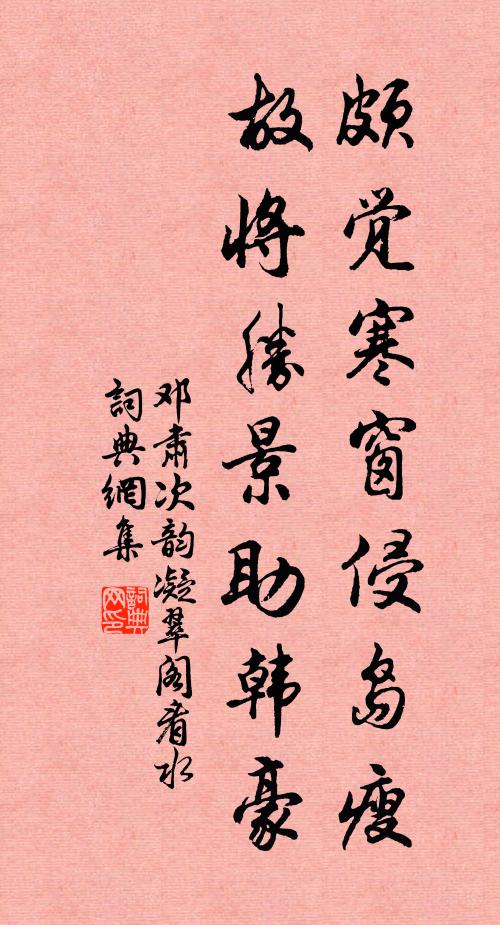 颇觉寒窗侵岛瘦
故将胜景助韩豪
邓肃次韵凝翠阁看水
詞典網集
詞典网印